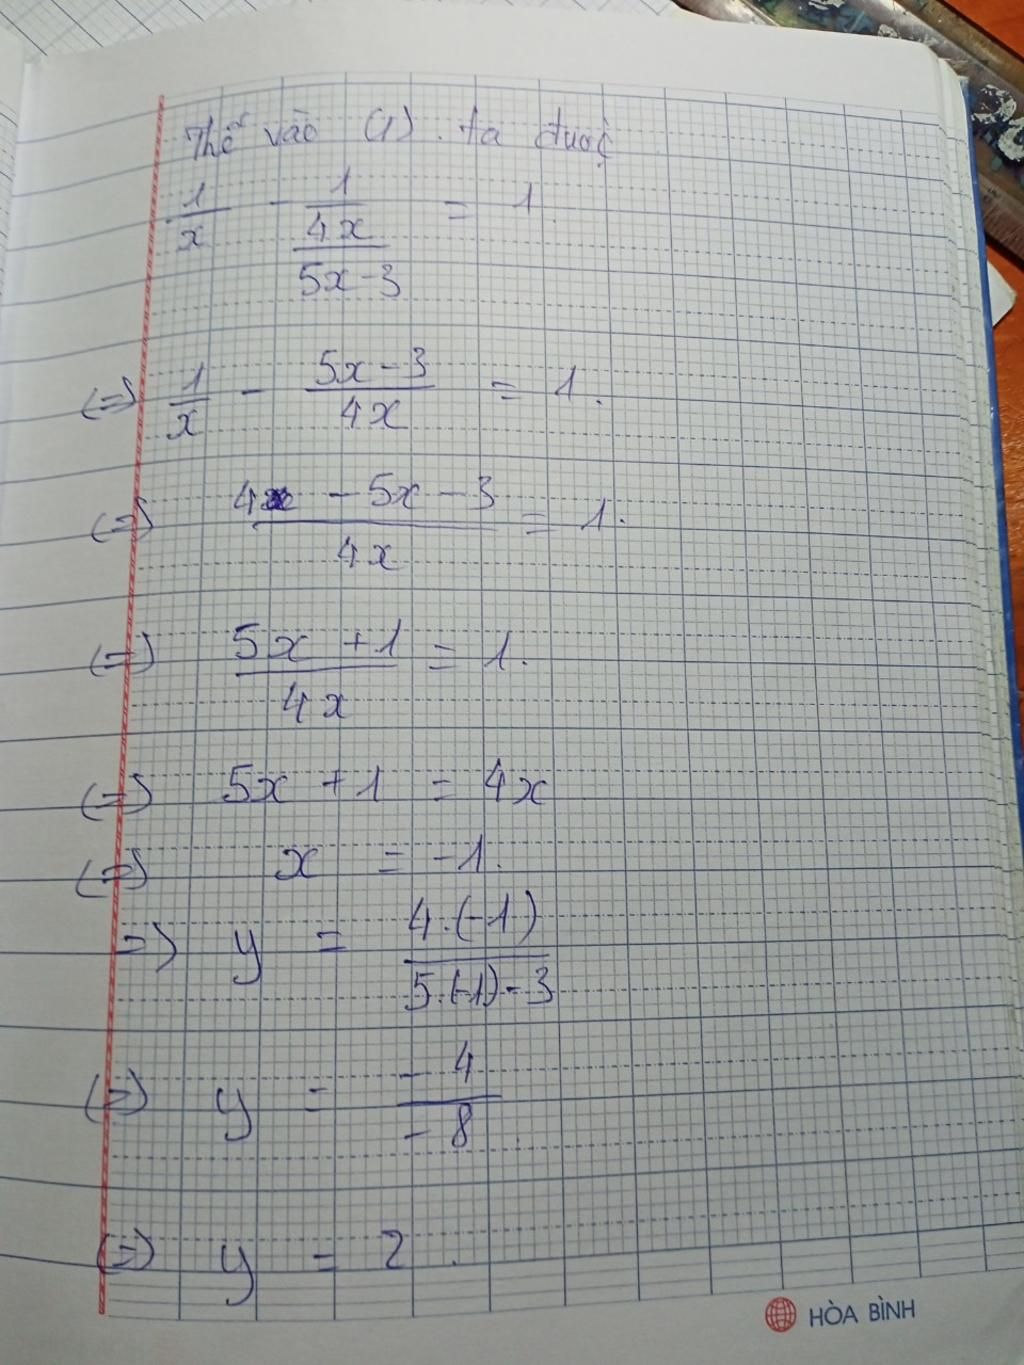 Thế vào (1). ta được
1/x - 1/(4x/(5x-3)) = 1
(=) 1/x - (5x-3)/4x = 1.
(=) (4 - 5x - 3)/4x = 1.
(=) (5x + 1)/4x = 1.
(=) 5x + 1 = 4x
(=) x = -1.
=) y = (4.(-1))/(5.(-1)-3)
(=) y = (-4)/(-8)
(=) y = 2.
HÒA BÌNH